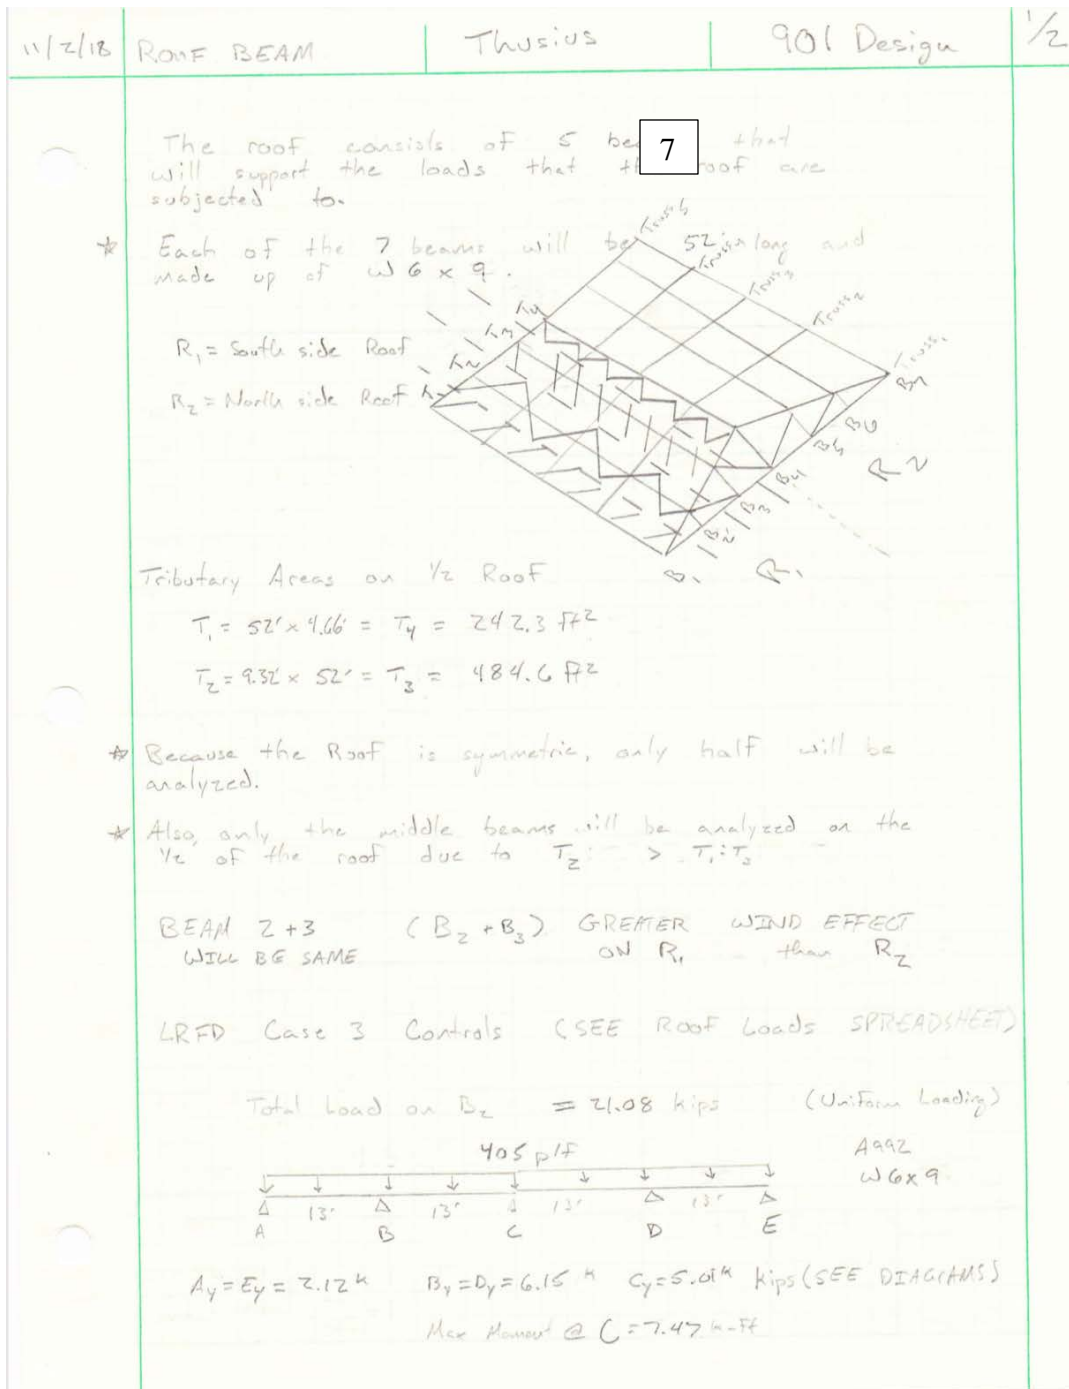 11/2/18 ROOF BEAM Thusius 901 Design 1/2
The roof consists of 5 7 that
will support the loads that roof are
subjected to.
* Each of the 7 beams will be 52' long and
made up of W 6 x 9.
Truss 5
Truss 3
Truss 2
Truss 1
T4
T3
T2
R1 = South side Roof
R2 = North side Roof
B7
B6
B5
B4
B3
B2
B1
R2
R1
Tributary Areas on 1/2 Roof
T1 = 52' x 4.66' = T4 = 242.3 ft2
T2 = 9.32' x 52' = T3 = 484.6 ft2
* Because the Roof is symmetric, only half will be
analyzed.
* Also, only the middle beams will be analyzed on the
1/2 of the roof due to T2 > T1
BEAM 2 + 3 (B2 + B3) GREATER WIND EFFECT
WILL BE SAME ON R1 than R2
LRFD Case 3 Controls (SEE Roof Loads SPREADSHEET)
Total Load on B2 = 21.08 kips (Uniform Loading)
405 plf A992
W6x9
13' 13' 13' 13'
A B C D E
Ay = Ey = 2.12 k By = Dy = 6.15 k Cy = 5.01k kips (SEE DIAGRAMS)
Max Moment @ C = 7.47 k-ft